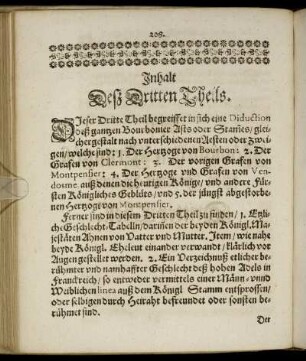 208.
Inhalt
Deß Dritten Theils.
DIeser Dritte Theil begreiffet in sich eine Diduction
deß gantzen Bourbonier Asts oder Stam̃es/ glei-
cher gestalt nach unterschiedenen Aesten oder Zwei-
gen/ welche sind: 1. Der Hertzoge von Bourbon: 2. Der
Grafen von Clermont: 3. Der vorigen Grafen von
Montpensier: 4. Der Hertzoge und Grafen von Ven-
dosme, auß denen die heutigen Könige/ und andere Für-
sten Königliches Geblütes/ und 5. der jüngst abgestorbe-
nen Hertzoge von Montpensier.
Ferner sind in diesem Dritten Theil zu finden/ 1. Etzli-
che Geschlecht-Tabelln/ dariñen der beyden Königl. Ma-
jestäten Ahnen von Vatter und Mutter. Item/ wie nahe
beyde Königl. Eheleut einander verwandt/ klärlich vor
Augen gestellet werden. 2. Ein Verzeichnuß etlicher be-
rühmter und namhaffter Geschlecht deß hohen Adels in
Franckreich/ so entweder vermittels einer Mäñ- unnd
Weiblichen linea auß dem Königl. Stamm entsprossen/
oder selbigen durch Heiraht befreundet oder sonsten be-
rühmet sind.
Der